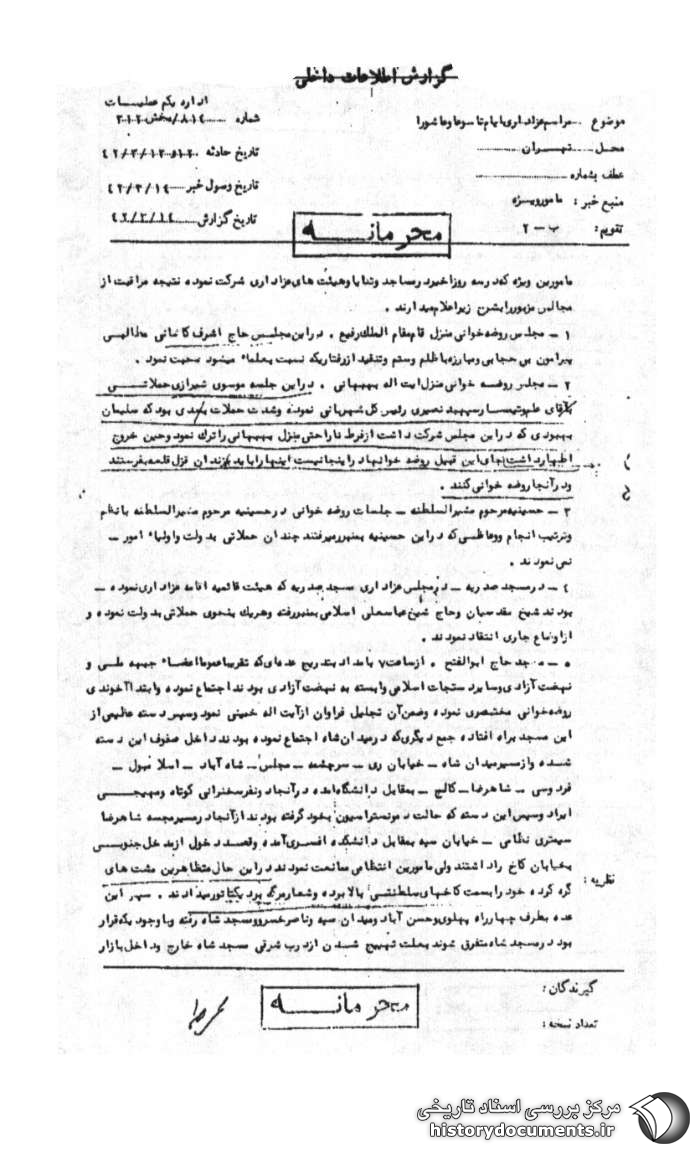 گزارش اطلاعات داخلی
اداره یکم عملیات
موضوع ... مراسم عزاداری ایام تاسوعا و عاشورا
شماره ... ۸۱٤/بخش ۳۱۲
محل ... تهران
تاریخ حادثه
عطف بشماره
تاریخ وصول خبر ... ٤۲/۳/۱٤
منبع خبر : مامور ویژه
تاریخ گزارش ... ٤۲/۳/۱٤
تقویم : ب - ۲
محرمانه
مامورین ویژه که در سه روز اخیر در مساجد و تکایا و هیئت های عزاداری شرکت نموده نتیجه مراقبت از
مجالس مزبور را بشرح زیر اعلام میدارند .
۱ - مجلس روضه خوانی منزل قام مقام الملک رفیع . در این مجلس حاج اشرف کاشانی مطالبی
پیرامون بی حجابی و مبارزه با ظلم و ستم و تنقید از رفتاریکه نسبت بعلماء میشود صحبت نمود .
۲ - مجلس روضه خوانی منزل ایت اله بهبهانی . در این جلسه موسوی شیرازی حملاتی
بآقای علم و تیمسار سپهبد نصیری رئیس کل شهربانی نموده و شدت حملات بحدی بود که سلیمان
بهبودی که در این مجلس شرکت داشت از فرط ناراحتی منزل بهبهانی را ترک نمود و حین خروج
اظهار داشت جای این قبیل روضه خوانها در اینجا نیست اینها را باید بزندان قزل قلعه بفرستند
و در آنجا روضه خوانی کنند .
۳ - حسینیه مرحوم مشیرالسلطنه - جلسات روضه خوانی در حسینیه مرحوم مشیرالسلطنه با نظم
و ترتیب انجام و وعاظی که در این حسینیه بمنبر میرفتند چندان حملاتی بدولت و اولیاء امور -
نمی نمودند .
٤ - در مسجد صدریه - در مجلس عزاداری مسجد صدریه که هیئت قائمیه اقامه عزاداری نموده -
بودند شیخ مقدسیان و حاج شیخ عباسعلی اسلامی بمنبر رفته و هریک بنحوی حملاتی بدولت نموده و
از اوضاع جاری انتقاد نمودند .
۵ - مسجد حاج ابوالفتح . از ساعت ۷ بامداد بتدریج عده ای که تقریبا عموما اعضاء جبهه ملی و
نهضت آزادی و سایر دستجات اسلامی وابسته به نهضت آزادی بودند اجتماع نموده و ابتدا آخوندی
روضه خوانی مختصری نموده و ضمن آن تجلیل فراوان از آیت اله خمینی نمود و سپس دسته عظیمی از
این مسجد براه افتاده جمع دیگری که در میدان شاه اجتماع نموده بودند داخل صفوف این دسته
شده و از مسیر میدان شاه - خیابان ری - سرچشمه - مجلس - شاه آباد - اسلامبول -
فردوسی - شاهرضا - کالج - بمقابل دانشگاه آمده در آنجا دو نفر سخنرانی کوتاه و مهیجی
ایراد و سپس این دسته که حالت دمونستراسیون بخود گرفته بودند از آنجا در مسیر مجسمه شاهرضا
سیمتری نظامی - خیابان سپه بمقابل دانشکده افسری آمده و قصد دخول از مدخل جنوبی
بخیابان کاخ را داشتند ولی مامورین انتظامی ممانعت نمودند در این حال متظاهرین مشت های
نظریه :
گره کرده خود را بسمت کاخهای سلطنتی بالا برده و شعار مرگ بر دیکتاتور میدادند . سپس این
عده بطرف چهارراه پهلوی و حسن آباد و میدان سپه و ناصرخسرو و مسجد شاه رفته و با وجودیکه قرار
بود در مسجد شاه متفرق شوند بعلت تهییج شدن از درب شرقی مسجد شاه خارج و داخل بازار
گیرندگان :
محرمانه
تعداد نسخه :
مرکز بررسی اسناد تاریخی
historydocuments.ir